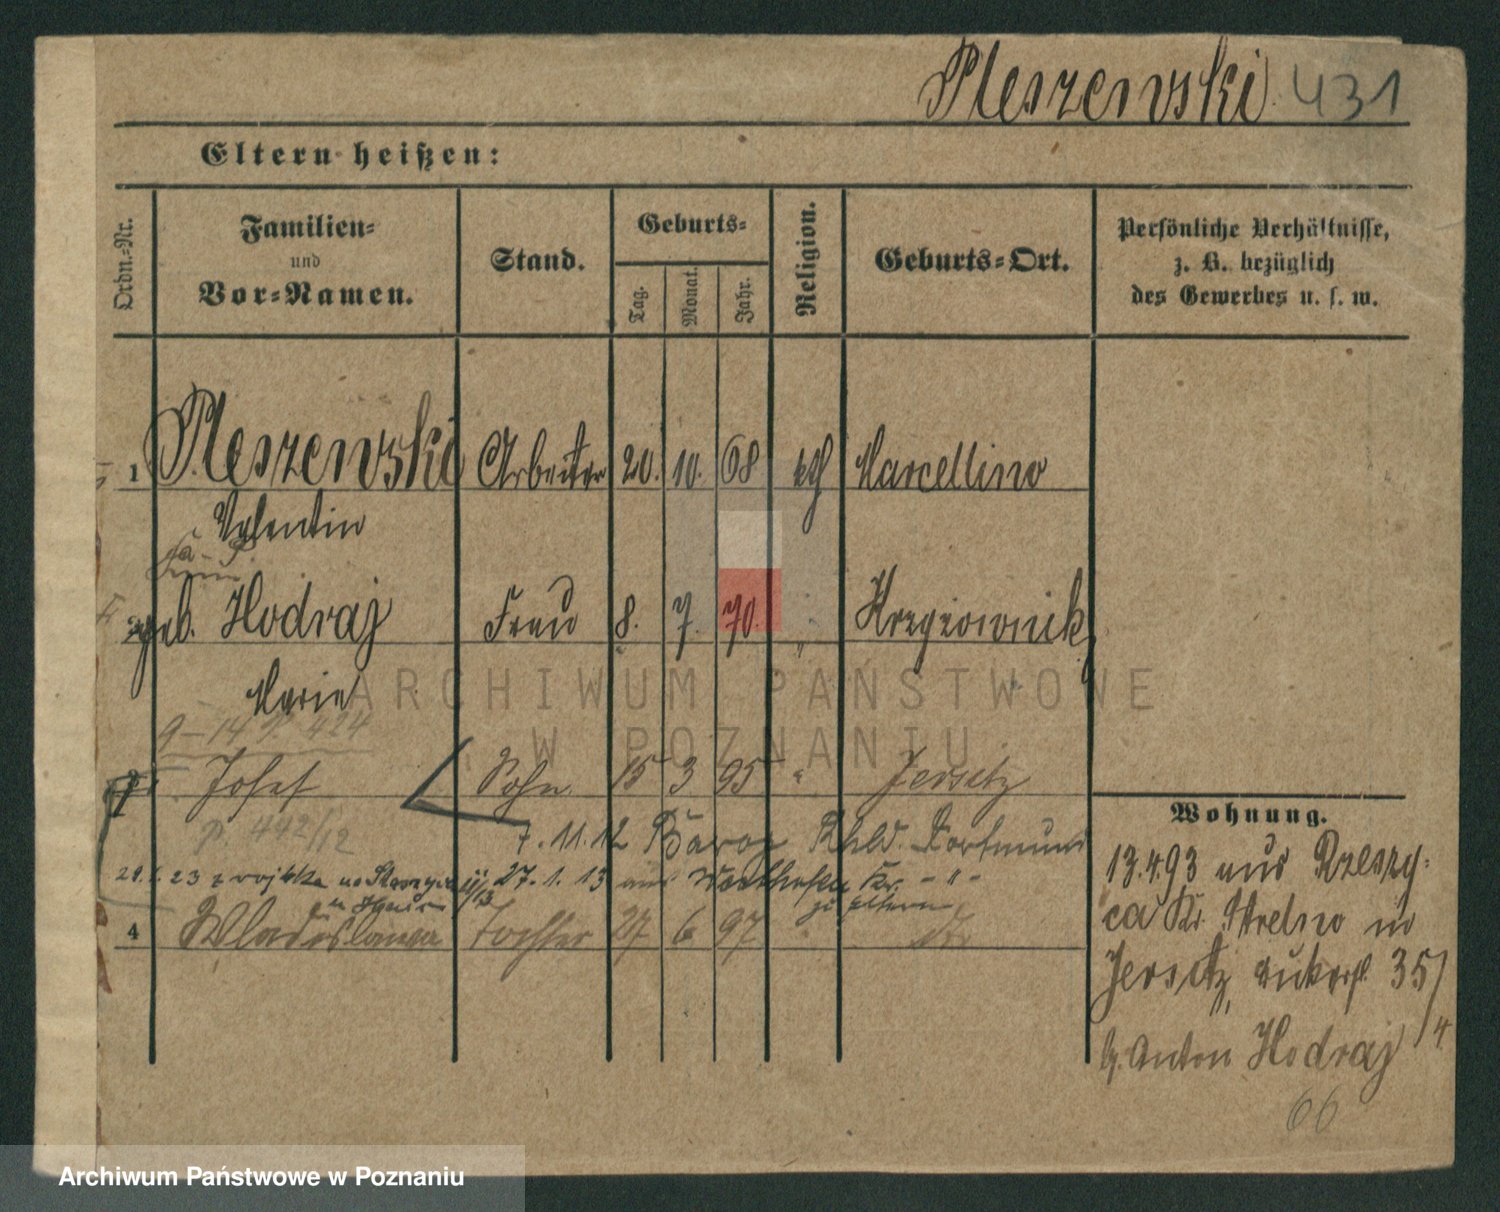 Pleszewski 431
Eltern heißen:
Ordn.-Nr.
Familien-
und
Vor-Namen.
Stand.
Geburts-
Tag.
Monat.
Jahr.
Religion.
Geburts-Ort.
Persönliche Verhältnisse,
z. B. bezüglich
des Gewerbes u. s. w.
1 Pleszewski Arbeiter 20. 10. 68 kth Marcellino
Valentin
geb. Hodraj Frau 8. 7. 70. "
Marie
ARCHIWUM PAŃSTWOWE
W POZNANIU
9-14 P. 424
Josef Sohn 15 3 95 " Jersitz
P. 442/12
7. 11. 12 Dortmund
23 z wojska 27. 1. 13 aus Kr. - " -
zu Eltern
4 Wladislawa Tochter 27 6 97
Wohnung.
13.4.93 aus Rzeszy-
ca Kr. Strelno in
Jersitz, 35/
4
b. Anton Hodraj
66
Archiwum Państwowe w Poznaniu